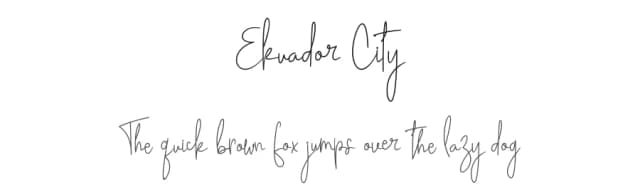 Ekvador City
The quick brown fox jumps over the lazy dog